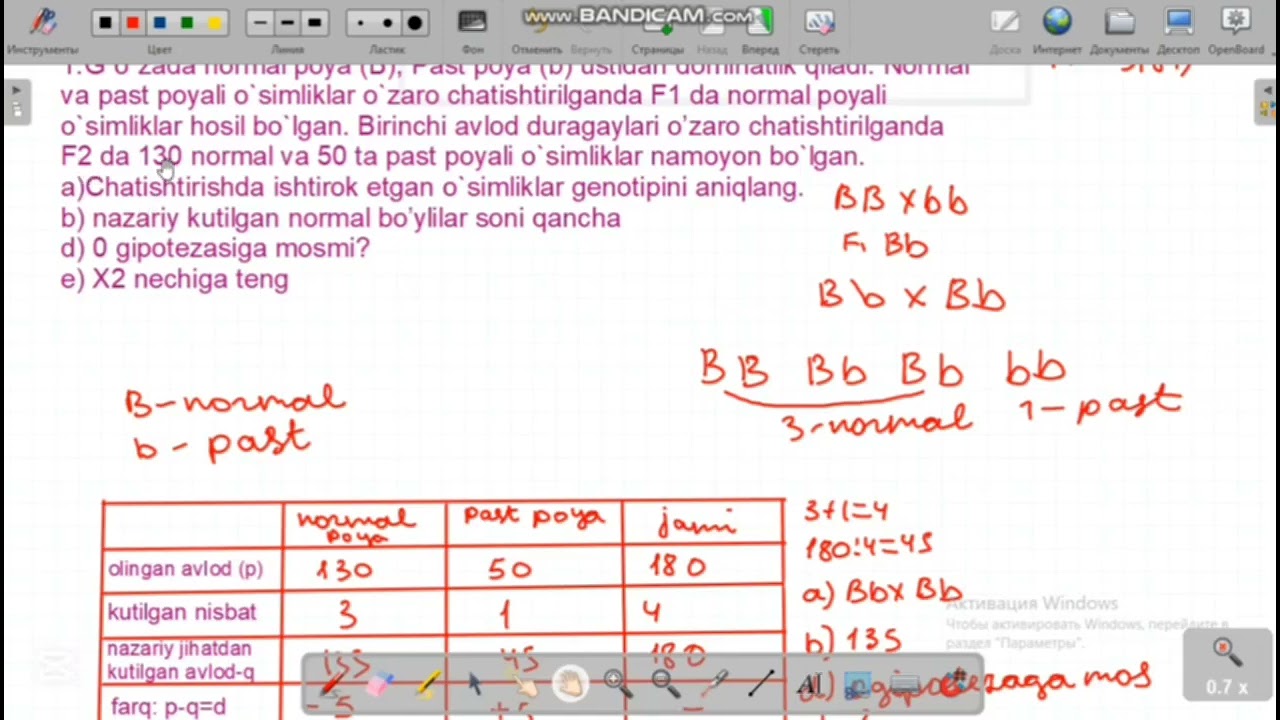 www.BANDICAM.com
Инструменты Цвет Линия Ластик Фон Отменить Вернуть Страницы Назад Вперед Стереть Доска Интернет Документы Десктоп OpenBoard
1.G`o`zada normal poya (B), Past poya (b) ustidan dominatlik qiladi. Normal
va past poyali o`simliklar o`zaro chatishtirilganda F1 da normal poyali
o`simliklar hosil bo`lgan. Birinchi avlod duragaylari o’zaro chatishtirilganda
F2 da 130 normal va 50 ta past poyali o`simliklar namoyon bo`lgan.
a)Chatishtirishda ishtirok etgan o`simliklar genotipini aniqlang.
b) nazariy kutilgan normal bo’ylilar soni qancha
d) 0 gipotezasiga mosmi?
e) X2 nechiga teng
BB x bb
F1 Bb
Bb x Bb
BB Bb Bb bb
3-normal 1-past
B-normal
b - past
normal poya past poya jami
olingan avlod (p) 130 50 180
kutilgan nisbat 3 1 4
nazariy jihatdan
kutilgan avlod-q 135 45 180
farq: p-q=d -5 +5 -
3+1=4
180:4=45
a) Bb x Bb
b) 135
mos
Активация Windows
Чтобы активировать Windows, перейдите в
раздел "Параметры".
0.7 x